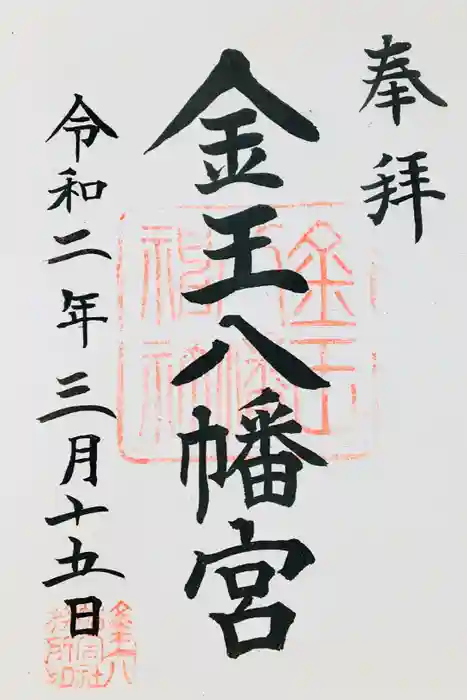 奉拝
金王八幡宮
令和二年三月十五日